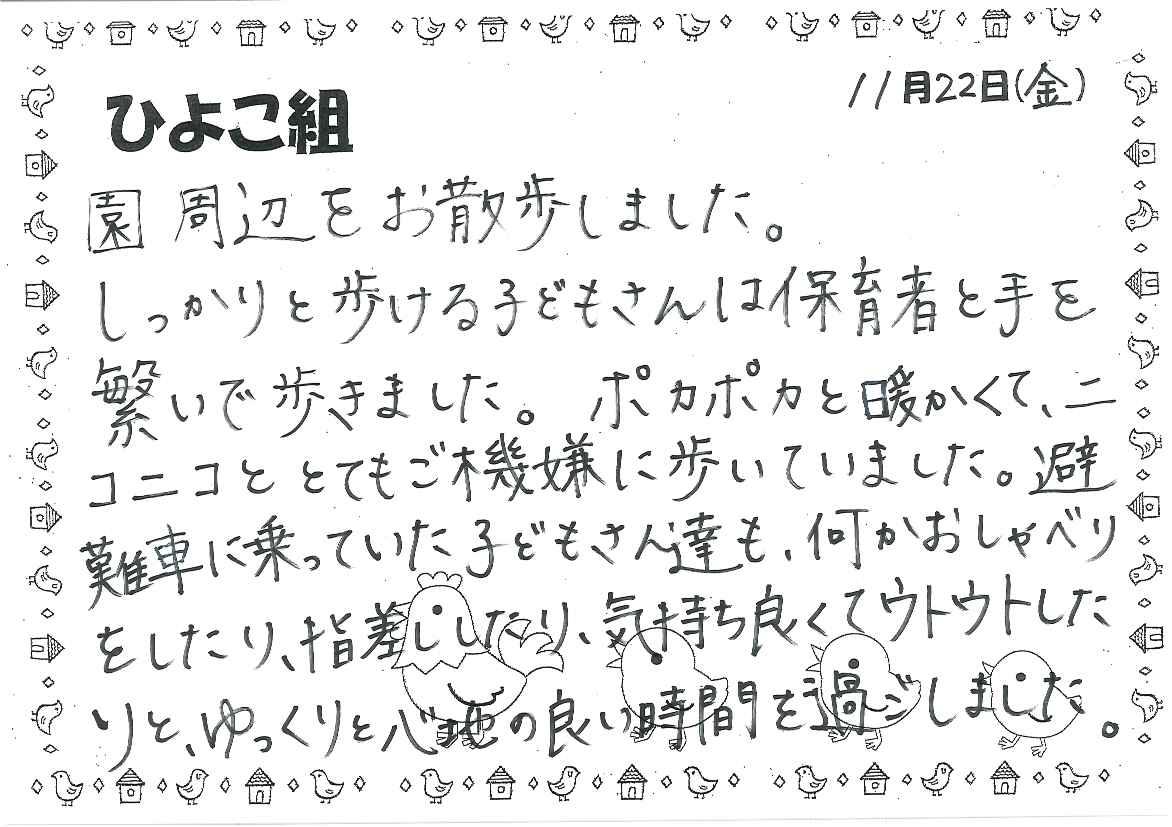 11月22日(金)
ひよこ組
園周辺をお散歩しました。
しっかりと歩ける子どもさんは保育者と手を
繋いで歩きました。ポカポカと暖かくて、ニ
コニコと とてもご機嫌に歩いていました。避
難車に乗っていた子どもさん達も、何かおしゃべり
をしたり、指差ししたり、気持ち良くてウトウトした
りと、ゆっくりと心地の良い時間を過ごしました。